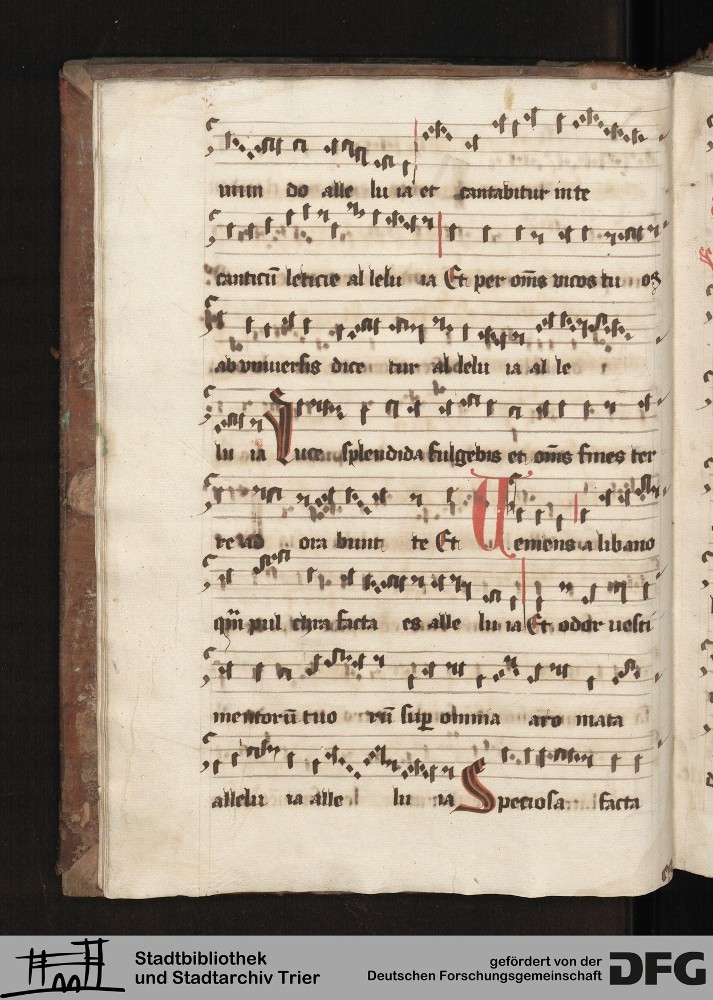 mun do alle lu ia et cantabitur in te
canticū leticie al lelu ia Et per om̄s vicos tu os
ab vniuersis dice tur al lelu ia al le
lu ia Luce splendida fulgebis et om̄s fines ter
re ad ora bunt te Et Veniens a libano
qm̄ pul chra facta es alle lu ia Et odor vesti
mentorū tuo rū sup omnia aro mata
allelu ia alle lu ia Speciosa facta
Stadtbibliothek
und Stadtarchiv Trier
gefördert von der
Deutschen Forschungsgemeinschaft
DFG